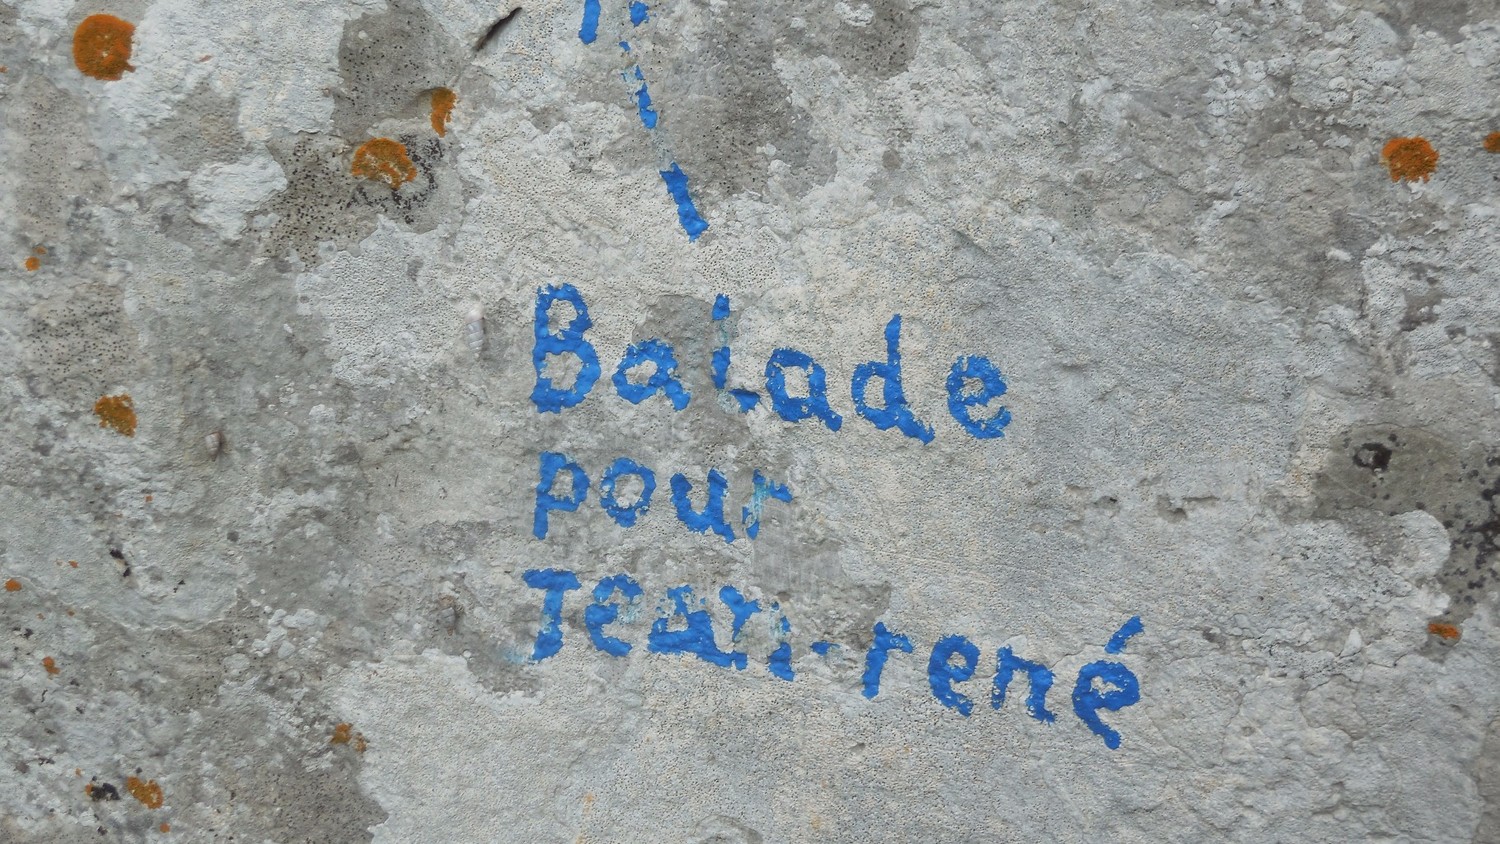 Balade
pour
Jean-rené